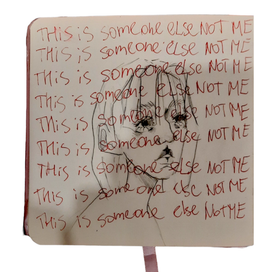 THIS is someone else NOT ME
THIS is someone else NOT ME
THIS is someone else NOT ME
THIS is someone else NOT ME
THIS is someone else NOT ME
THIS is someone else NOT ME
THIS is someone else NOT ME
THIS is someone else NOT ME
THIS is someone else NOT ME